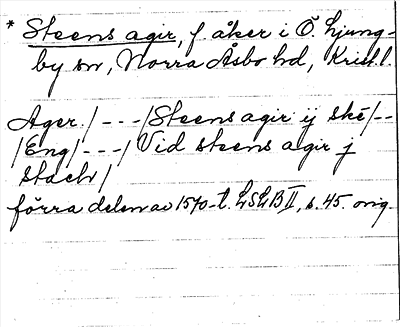 * Steens agir, f. åker i Ö. Ljung-
by sn, Norra Åsbo hd, Krist. l.
Ager. / - - - / Steens agir ij ské / - -
/ Eng / - - - / Vid steens agir j
stach /
förra delen av 1570-t. LSLB II, s. 45. orig.